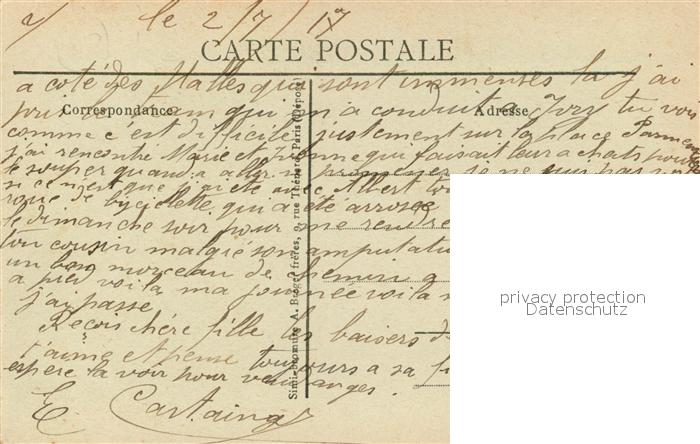 le 2/7/17
CARTE POSTALE
Correspondance
Adresse
a coté des Halles qui sont immenses la j'ai
pris un qui m'a conduit a Ivry tu vois
comme c'est difficile justement sur la place
j'ai rencontré Marie et qui faisait leur achats pour
le souper quand a aller se promener je ne suis pas
si ce n'est que j'ai été avec Albert
roue de biciclette qui a été arrosée
le dimanche soir pour me rendre
ton cousin malgié son amputati
un bon morceau de chemin
a pied voila ma journée voila
j'ai passé
Reçois chére fille les baisers d
t'aime et pense toujours a sa fi
espere la voir pour vendanges.
E. Cartaing
Simili-bromure A. Breger frères, 9, rue Thénard, Paris (Déposé)
privacy protection
Datenschutz